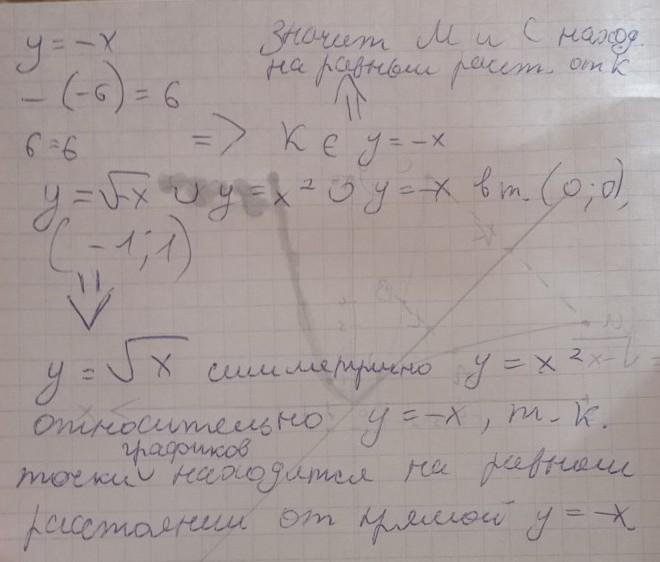 y = -x
Значит M и C наход.
на равный расст. от K
- (-6) = 6
6 = 6
=> K ∈ y = -x
y = √-x ∪ y = x² ∪ y = -x в т. (0;0),
(-1;1)
y = √x симметрично y = x²
относительно y = -x, т.к.
графиков
точки находятся на равном
расстоянии от прямой y = -x